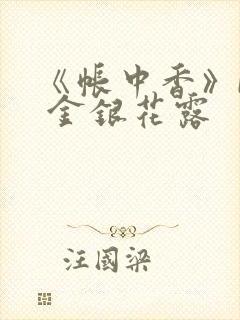 《帐中香》
金银花露
汪国梁